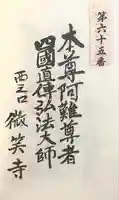 第六十五番
本尊阿難尊者
四國直傳弘法大師
西ノ口 微笑寺